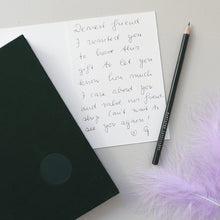 Dearest friend
I wanted you
to have this
gift to let you
know how much
I care about you
and value our friend
ship. Can't wait to
see you again!